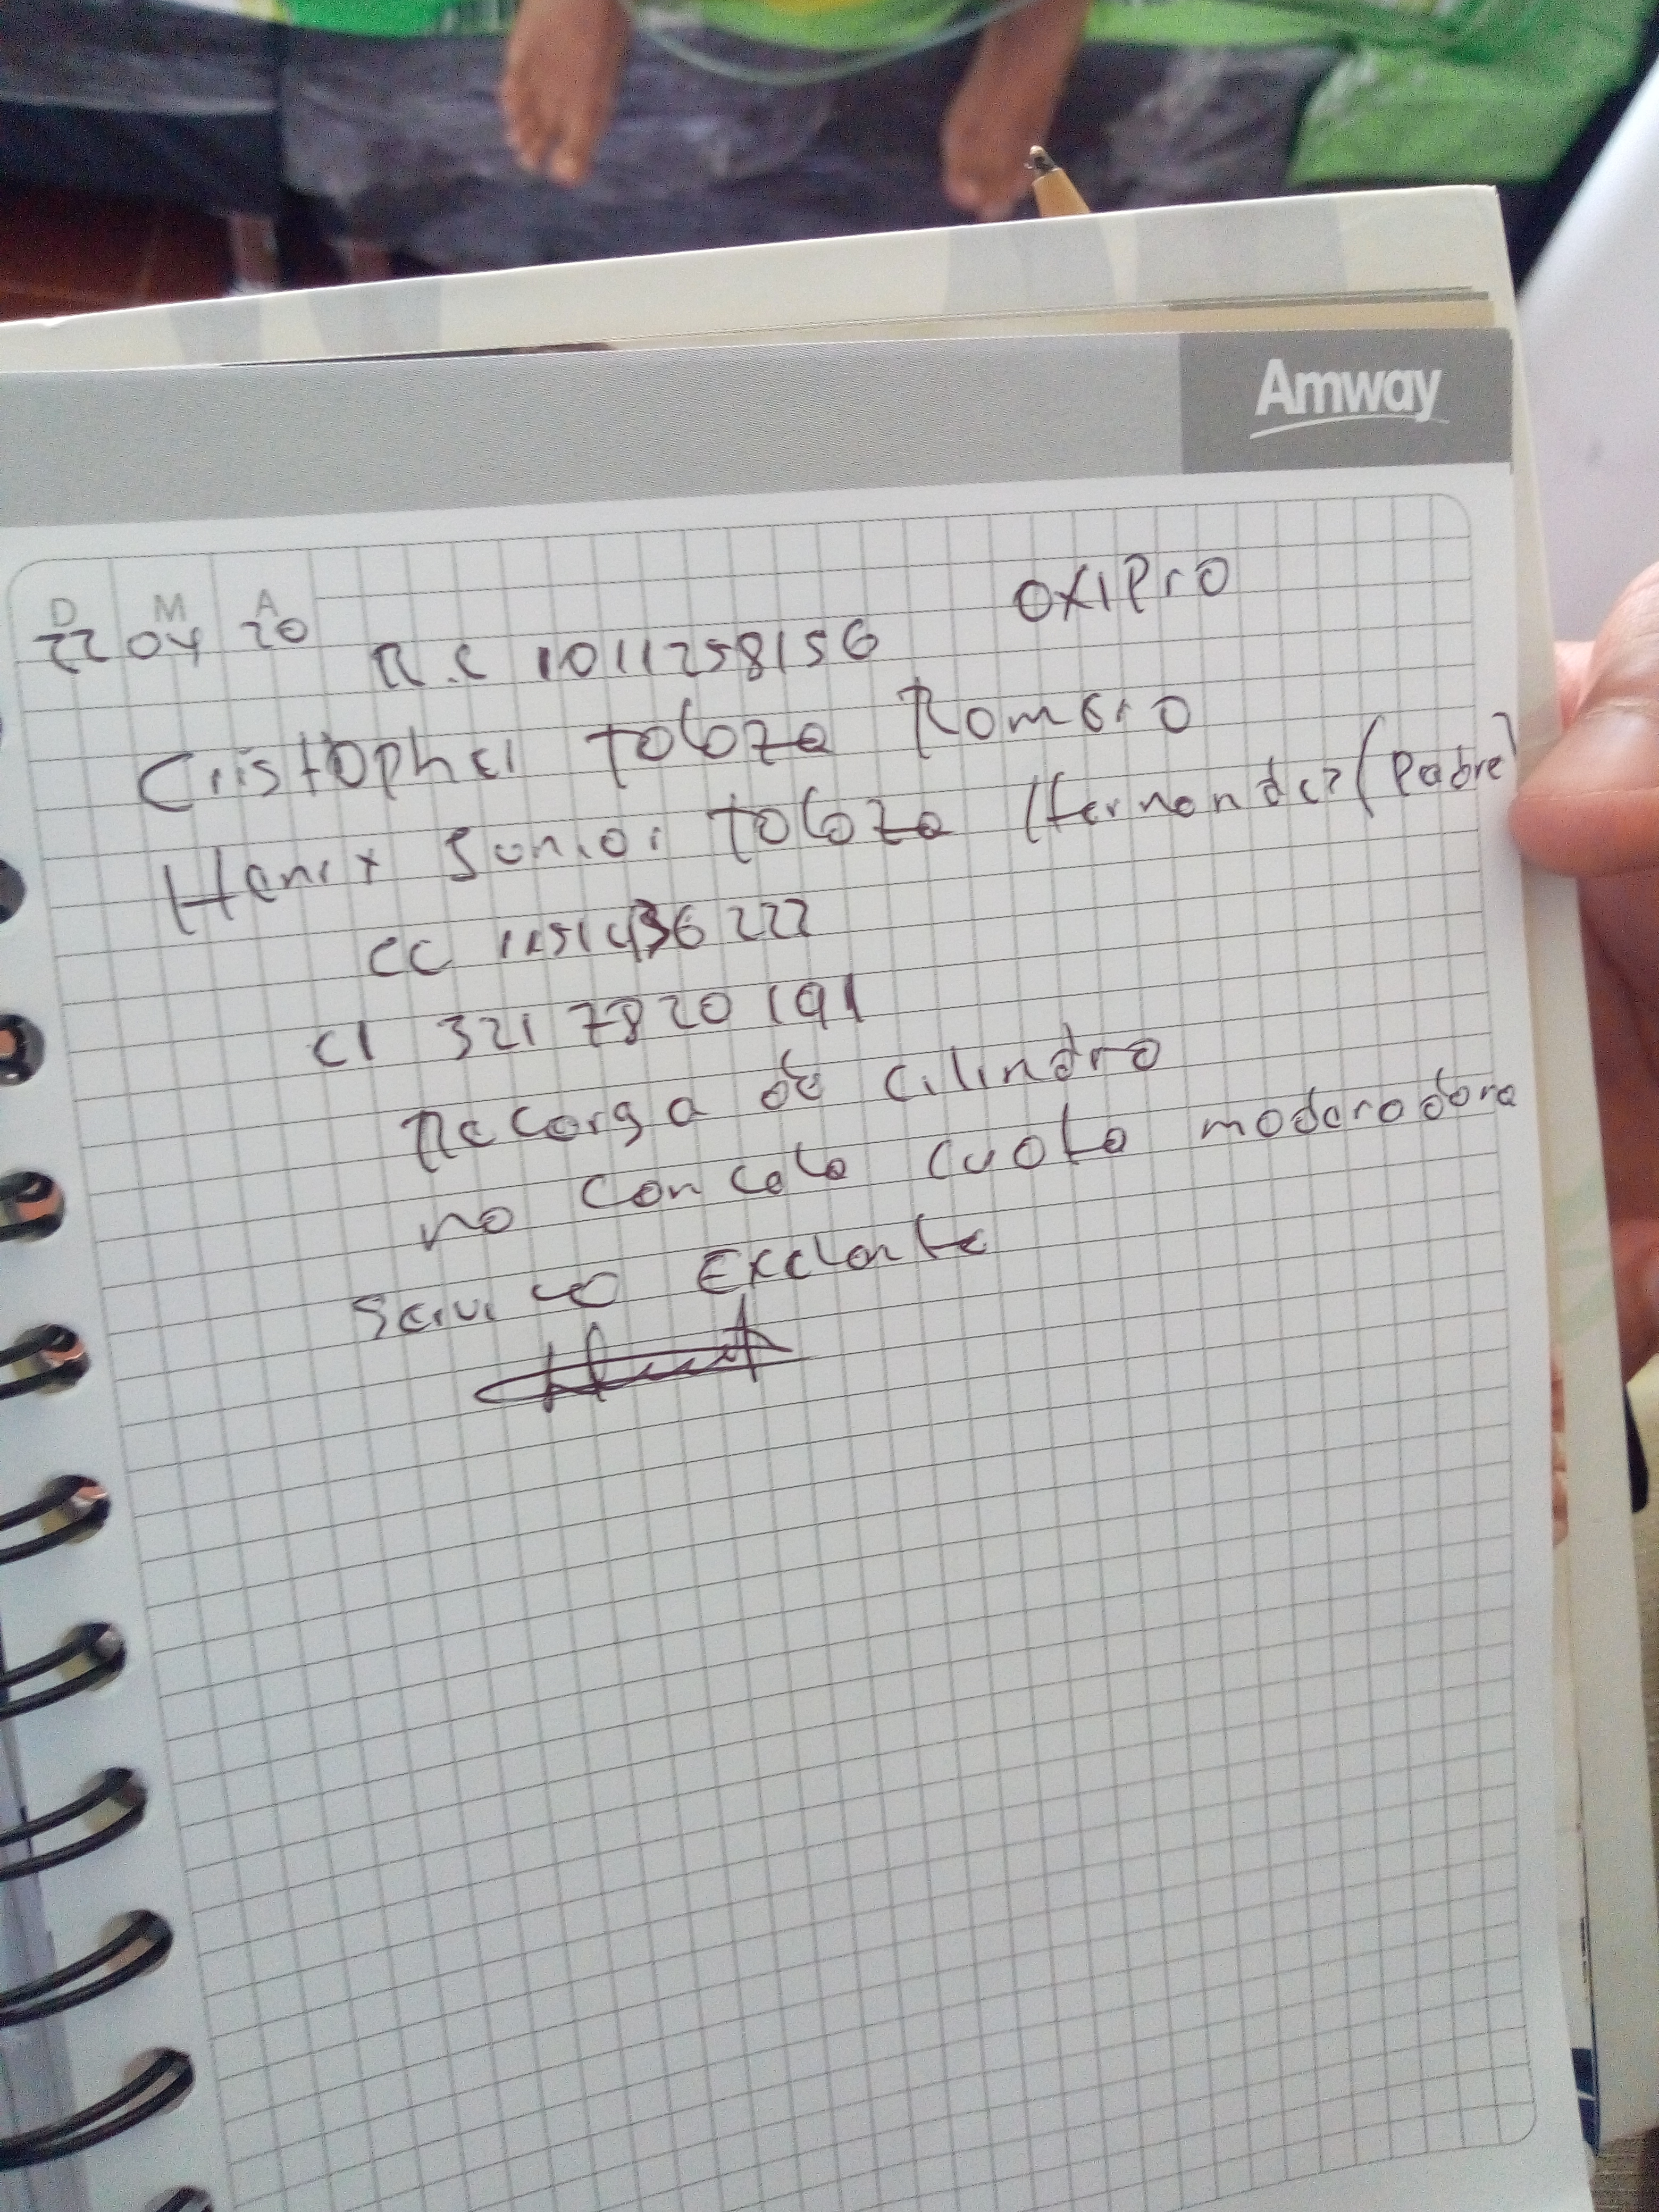 Amway
D M A
22 04 20
OXIPro
R.C 1011258156
Cristopher Toloza Romero
Henrx Junior Toloza Hernandez (Padre)
CC 1151436222
Cl 321 7820191
Recarga de cilindro
no concela cuota moderadora
Servicio Exelente